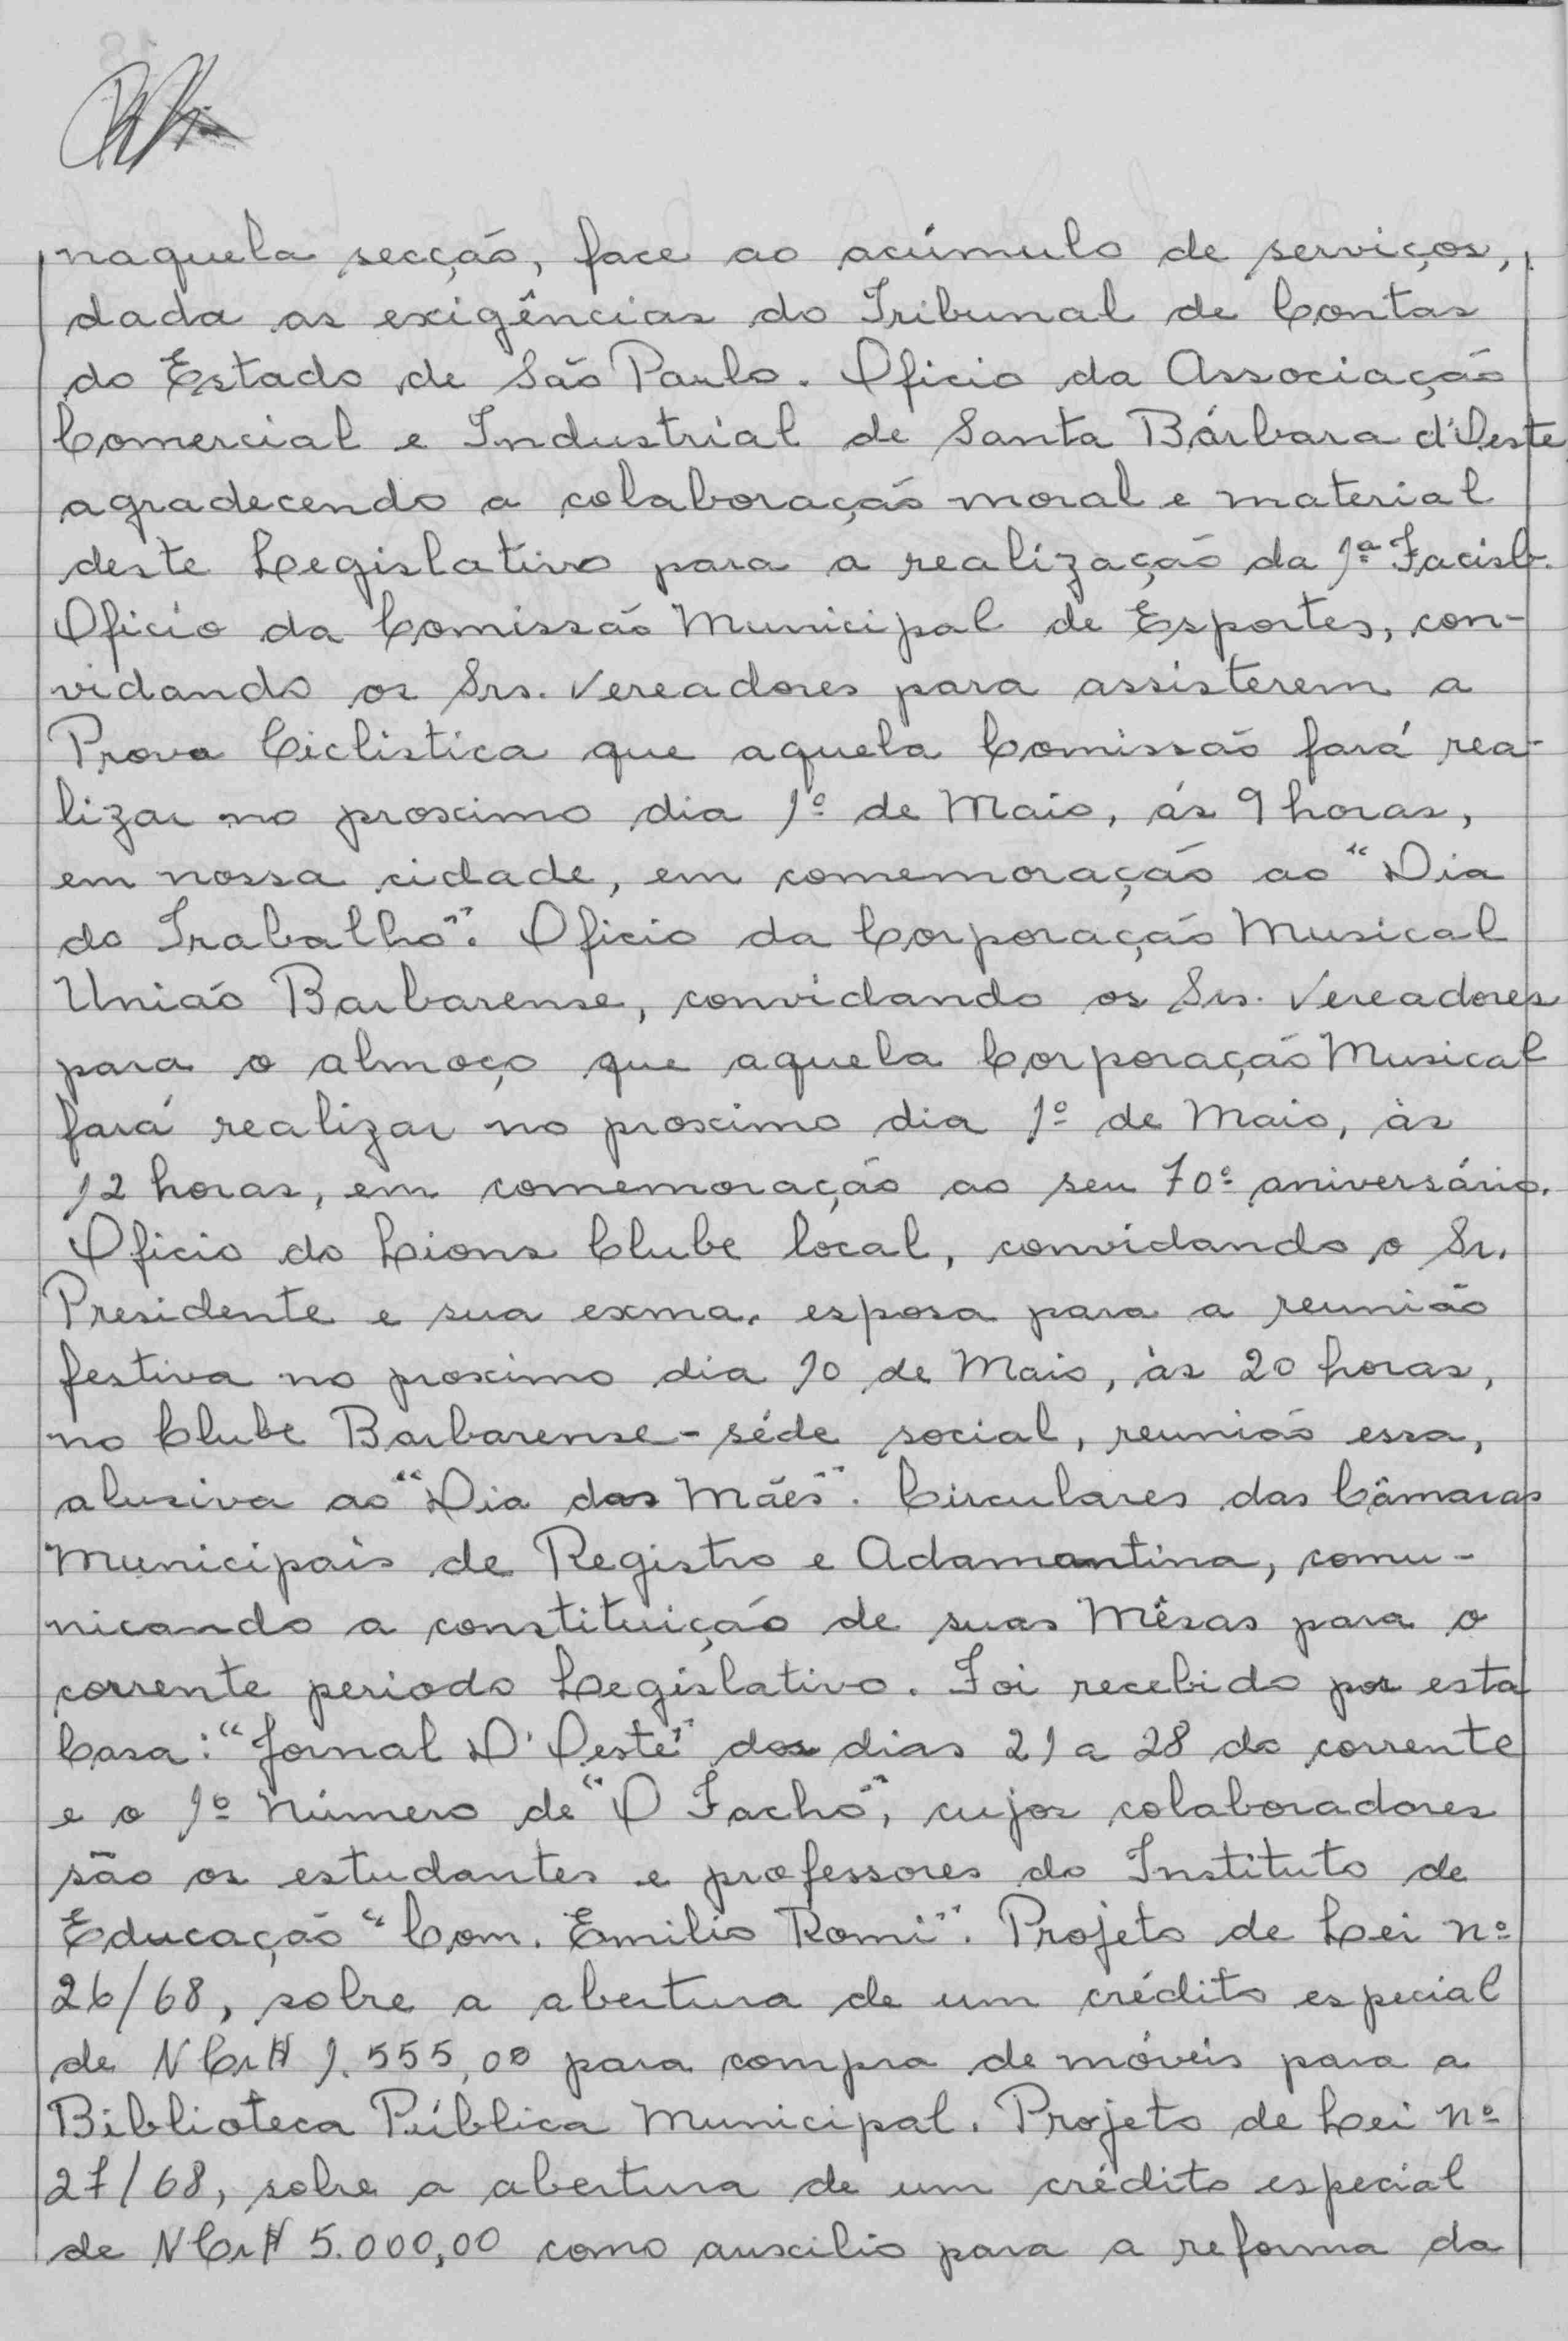 naquela secção, face ao acúmulo de serviços,
dada as exigências do Tribunal de Contas
do Estado de São Paulo. Oficio da Associação
Comercial e Industrial de Santa Bárbara d'Oeste
agradecendo a colaboração moral e material
deste Legislativo para a realização da 1ª Facisb.
Oficio da Comissão Municipal de Esportes, con-
vidando os Srs. Vereadores para assisterem a
Prova Ciclistica que aquela Comissão fará rea-
lizar no proximo dia 1º de Maio, ás 9 horas,
em nossa cidade, em comemoração ao "Dia
do Trabalho". Oficio da Corporação Musical
União Barbarense, convidando os Srs. Vereadores
para o almoço que aquela Corporação Musical
fará realizar no proximo dia 1º de Maio, às
12 horas, em comemoração ao seu 70º aniversário.
Oficio do Lions Clube local, convidando o Sr.
Presidente e sua exma. esposa para a reunião
festiva no proximo dia 10 de Maio, às 20 horas,
no Clube Barbarense - séde social, reunião essa,
alusiva ao "Dia das Mães". Circulares das Câmaras
Municipais de Registro e Adamantina, comu-
nicando a constituição de suas Mêsas para o
corrente periodo Legislativo. Foi recebido por esta
Casa: "Jornal D'Oeste" dos dias 21 a 28 do corrente
e o 1º número de "O Facho", cujos colaboradores
são os estudantes e professores do Instituto de
Educação "Com. Emilio Romi". Projeto de Lei nº
26/68, sobre a abertura de um crédito especial
de NCr$ 1.555,00 para compra de móveis para a
Biblioteca Pública Municipal. Projeto de Lei nº
27/68, sobre a abertura de um crédito especial
de NCr$ 5.000,00 como auxcilio para a reforma da